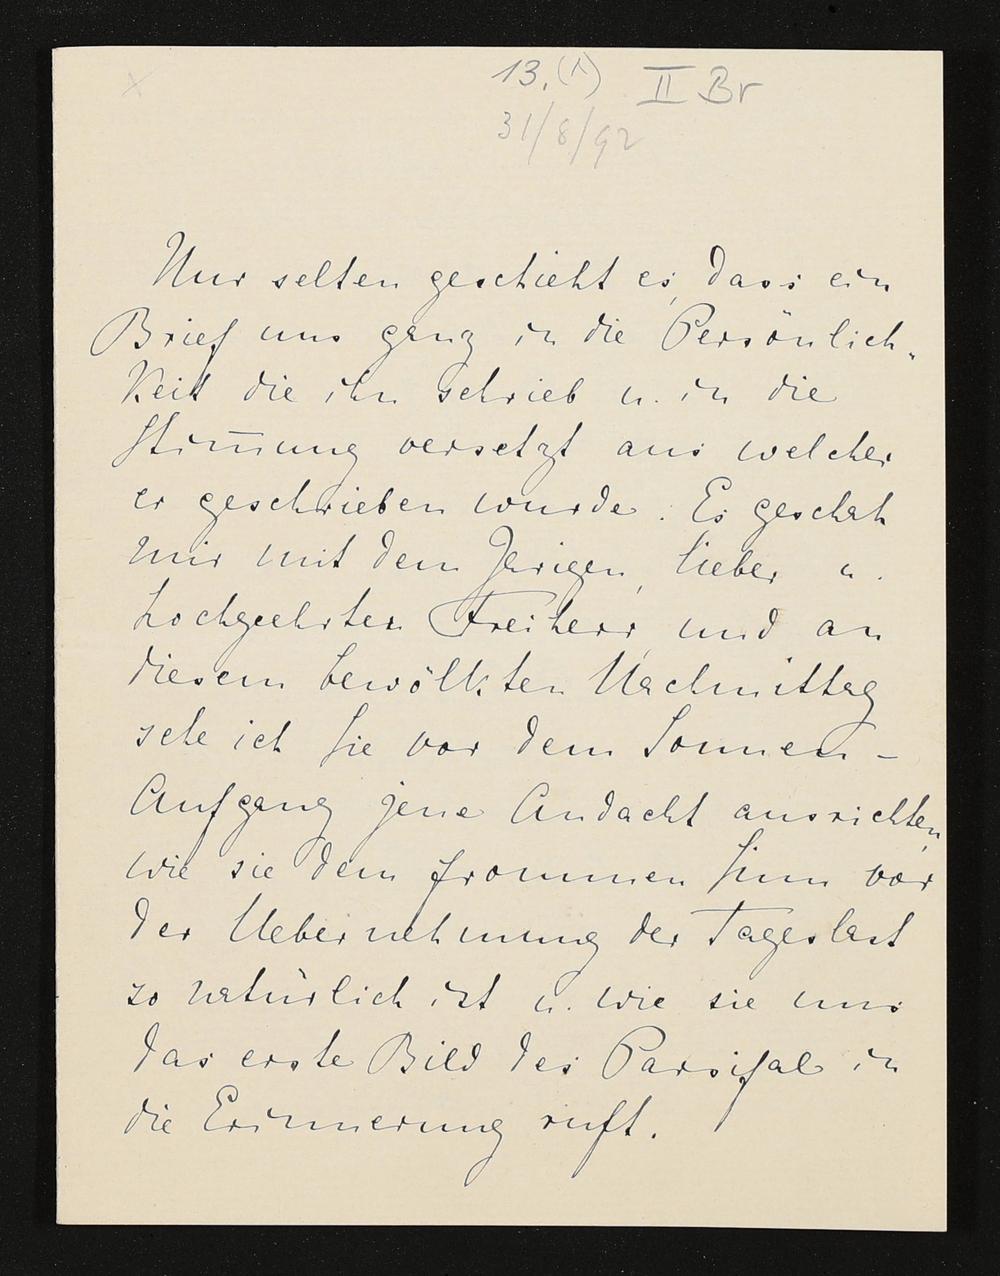 13. (1) II Br
31/8/92
Nur selten geschieht es, dass ein
Brief uns ganz in die Persönlich-
keit die ihn schrieb u. in die
Stim̅ung versetzt aus welcher
er geschrieben wurde. Es geschah
mir mit dem Ihrigen, lieber u.
hochgeehrter Freiherr, und an
diesem bewölkten Nachmittag
sehe ich Sie vor dem Sonnen-
Aufgang jene Andacht ausrichten,
wie sie dem frommen Sinn vor
der Uebernehmung der Tageslast
so natürlich ist u. wie sie uns
das erste Bild des Parsifal in
die Erinnerung ruft.